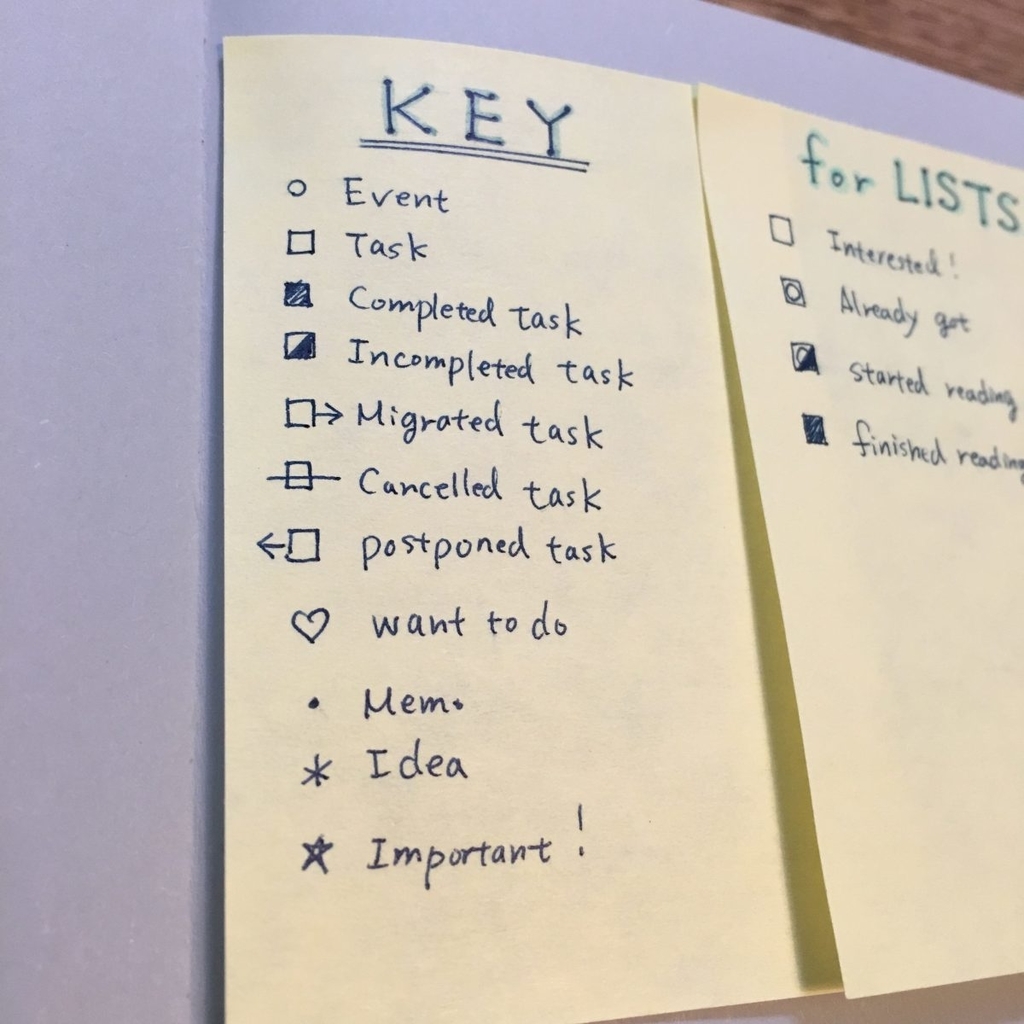 KEY
Event
Task
Completed task
Incompleted task
Migrated task
Cancelled task
postponed task
want to do
Memo
Idea
Important!
for LISTS
Interested!
Already got
started reading
finished reading